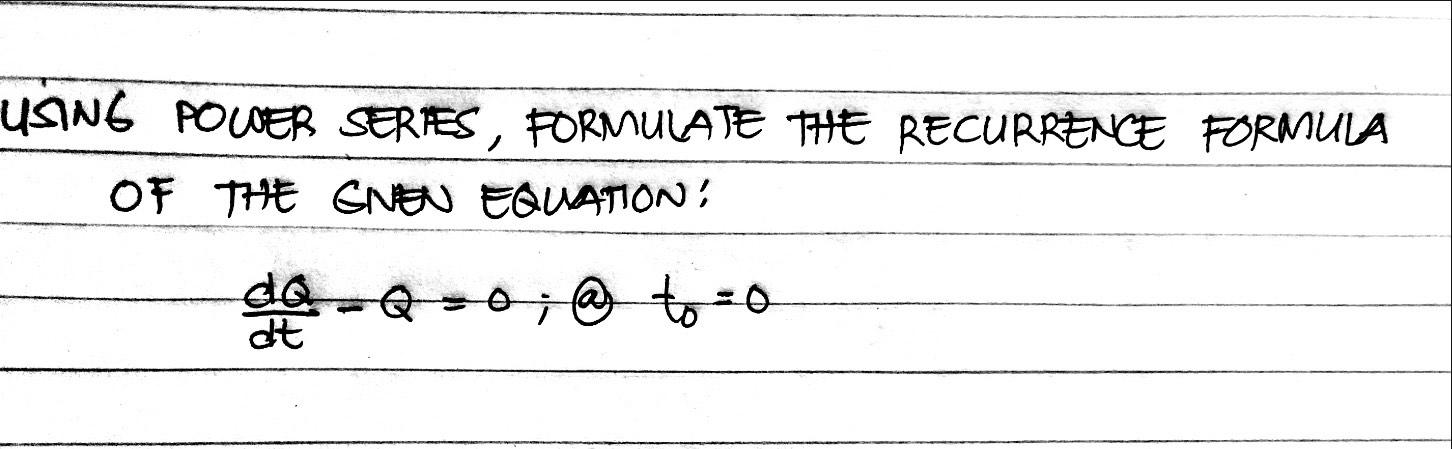 USING POWER SERIES, FORMULATE THE RECURRENCE FORMULA
OF THE GIVEN EQUATION:
dQ/dt - Q = 0 ; @ t₀ = 0